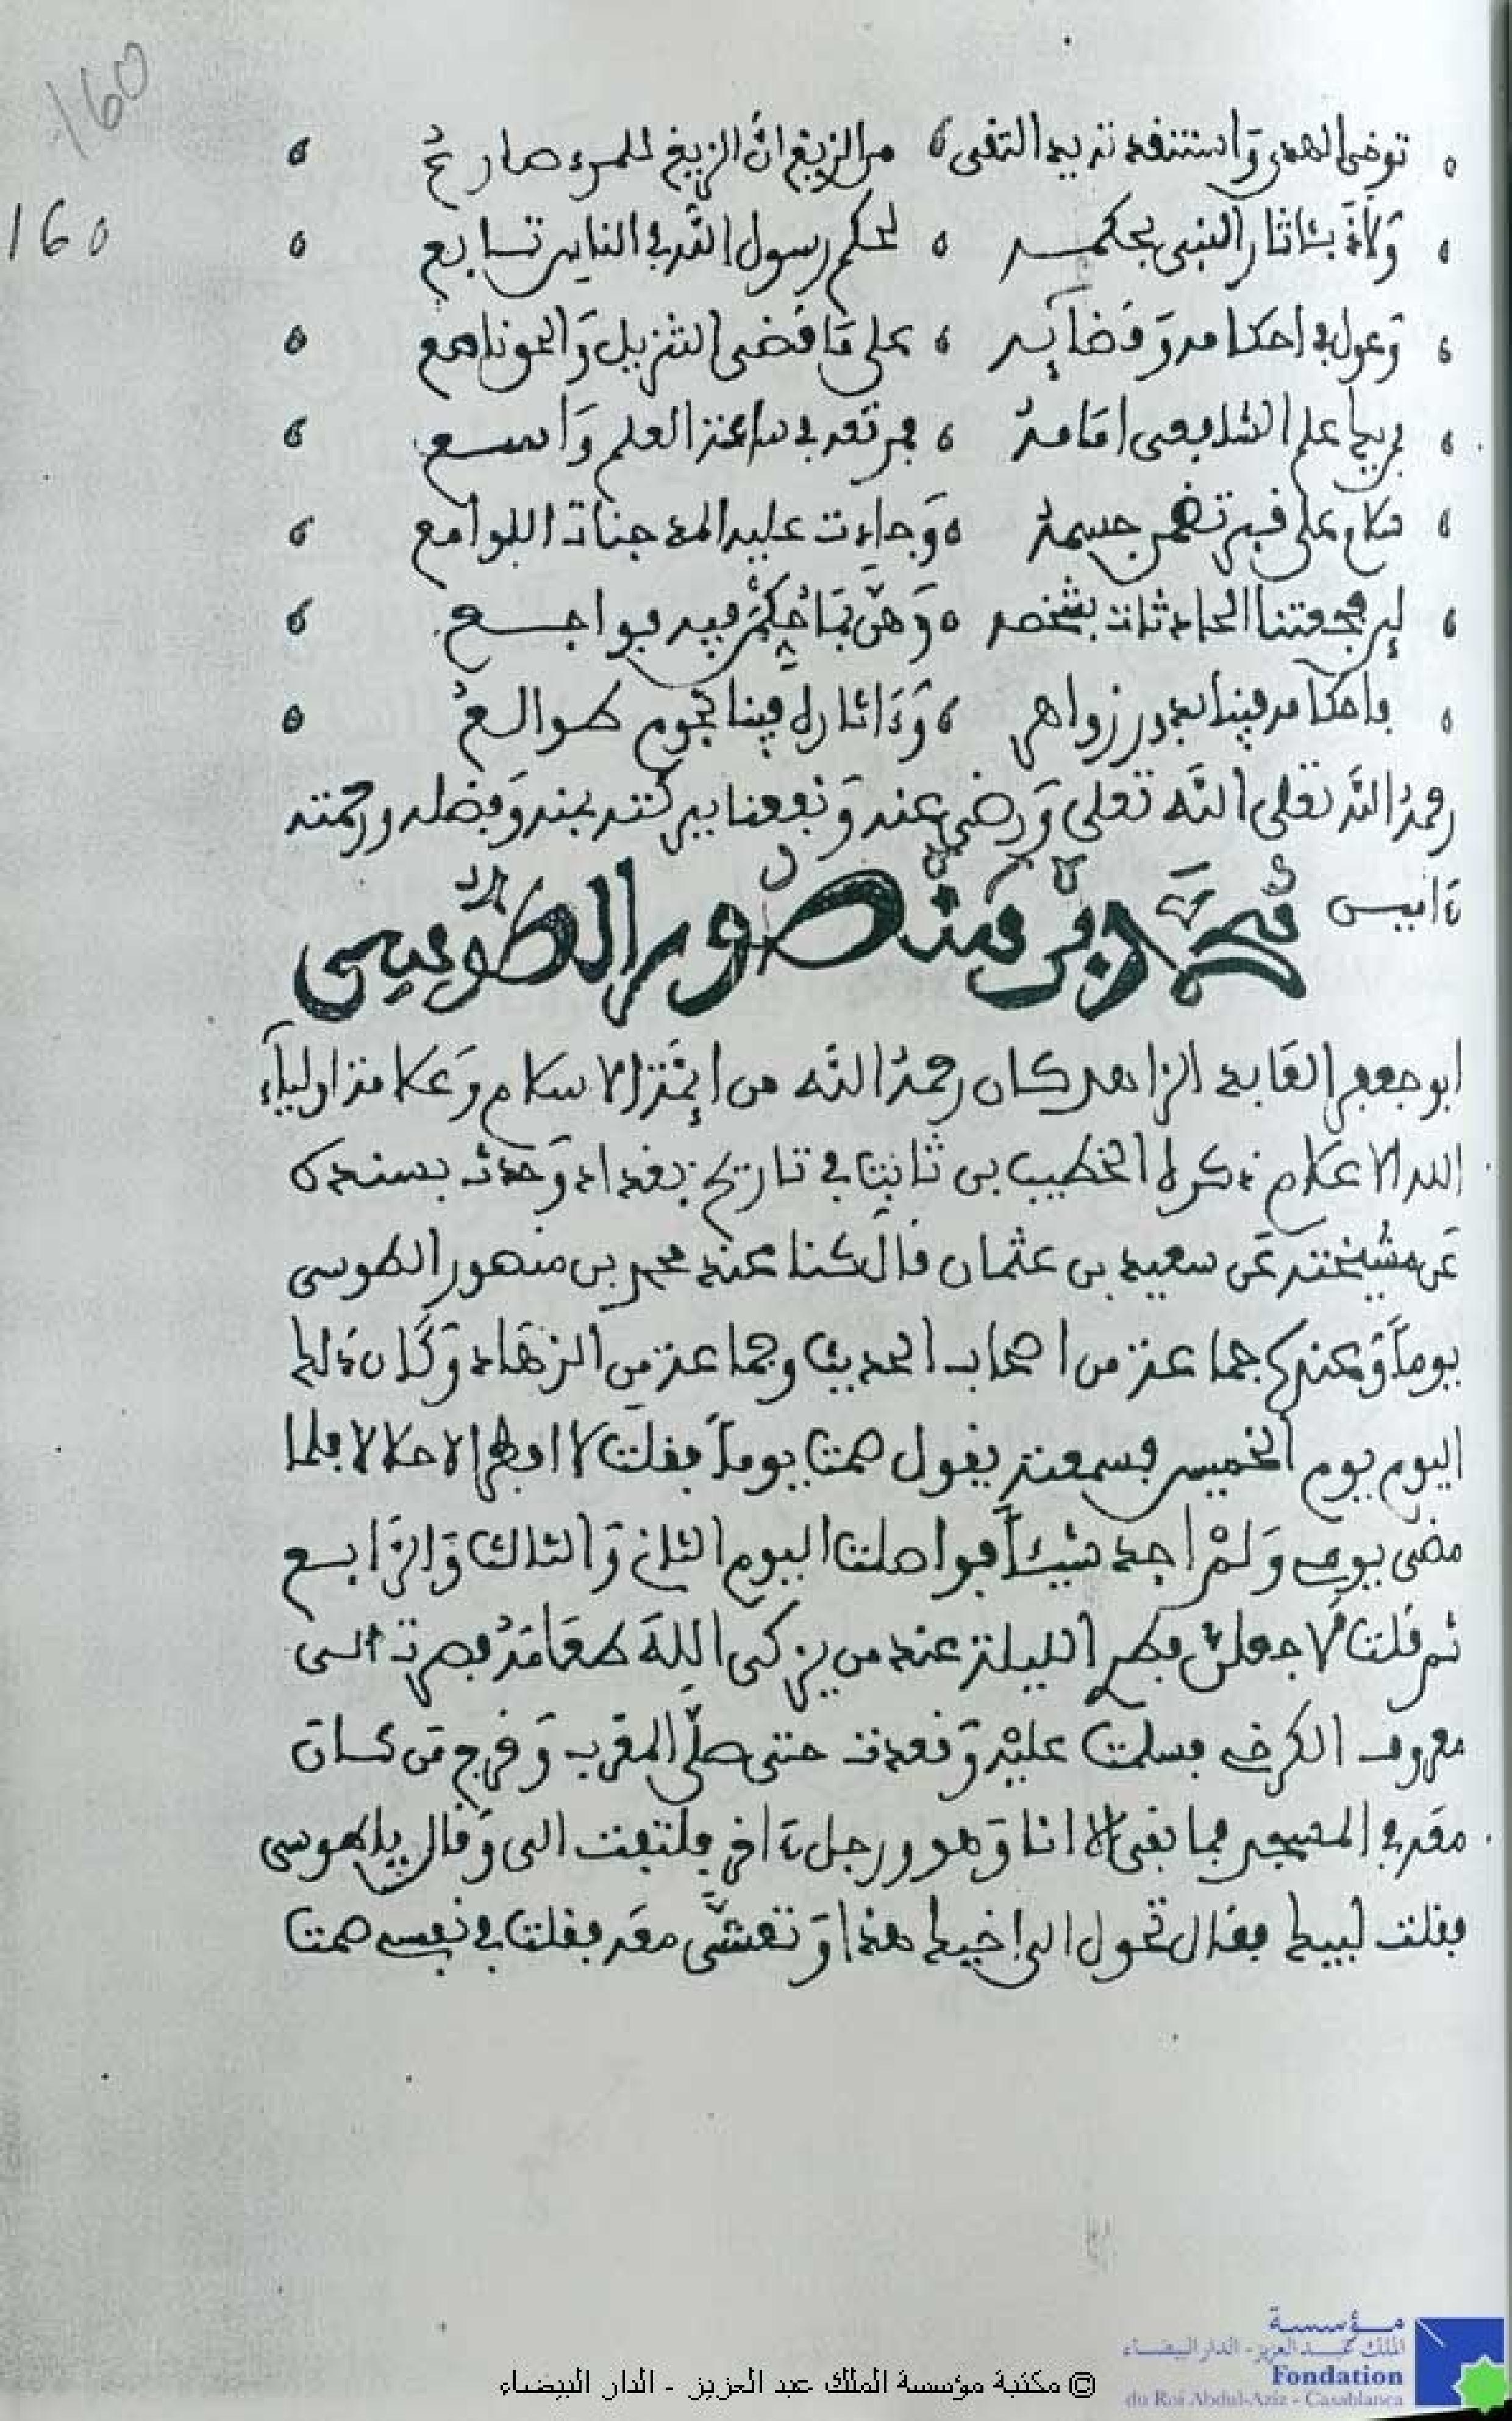 160
160
توخى الهدى واستنقذته يد التقى من الزيغ ان الزيغ للمرء صارع
ولاذ بئاثار النبي بحكمه لحكم رسول الله في الناس تابع
وعول في احكامه وقضايه على ما قضى التنزيل والحق ناصع
فمن يك علم الشافعي امامه فمرتعه في ساعة العلم واسع
سلام على قبر تضمن جسمه وجادت عليه المدجنات اللوامع
لين فجعتنا الحادثات بشخصه وهن بما حكمن فيه فواجع
فاحكامه فينا بدور زواهر وءاثاره فينا نجوم طوالع
رحمه الله تعلى الله تعلى ورضي عنه ونفعنا ببركته بمنه وفضله ورحمته
ءاميين
محمد بن منصور الطوسي
ابو جعفر العابد الزاهد كان رحمه الله من ايمة الاسلام وعلامة اولياء
الله الاعلام ذكره الخطيب بن ثابت في تاريخ بغداد وحدث بسنده
عن مشيخته عن سعيد بن عثمان قال كنا عند محمد بن منصور الطوسي
يوماً وعنده جماعة من اصحاب الحديث وجماعة من الزهاد وكان ذلك
اليوم يوم الخميس فسمعته يقول صمت يوماً فقلت لا افطر الا حلالا فلما
مضى يومي ولم اجد شيئاً فواصلت اليوم الثاني والثالث والرابع
ثم قلت لاجعلن فطر الليلة عند من يزكى الله طعامه فصرت الى
معروف الكرخي فسلمت عليه وقعدت حتى صلى المغرب وخرج من كان
معه في المسجد فما بقي الا انا وهو ورجل ءاخر فلتفت الى وقال يا طوسى
فقلت لبيك فقال تحول الى اخيك هذا وتعشى معه فقلت في نفسي صمت
مؤسسة
الملك عبد العزيز - الدار البيضاء
Fondation
du Roi Abdul-Aziz - Casablanca
© مكتبة مؤسسة الملك عبد العزيز - الدار البيضاء